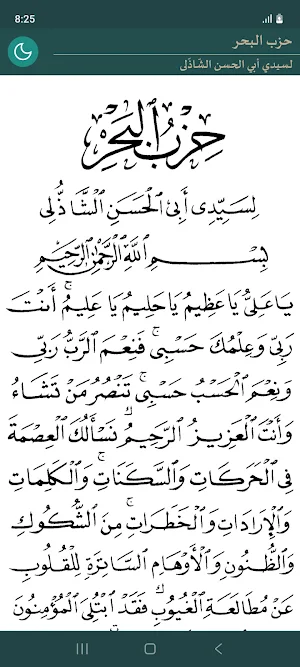 8:25
حزب البحر
لسيدي أبي الحسن الشّاذلى
حِزْبُ ٱلْبَحْرِ
لِسَيِّدِى أَبِى ٱلْحَسَنِ ٱلشَّاذُلِّى
بِسْمِ ٱللَّهِ ٱلرَّحْمَٰنِ ٱلرَّحِيمِ
يَاعَلِىُّ يَاعَظِيمُ يَاحَلِيمُ يَاعَلِيمُ ۚ أَنتَ
رَبِّى وَعِلْمُكَ حَسْبِى ۚ فَنِعْمَ ٱلرَّبُّ رَبِّى
وَنِعْمَ ٱلْحَسْبُ حَسْبِى ۚ تَنْصُرُ مَنْ تَشَاءُ
وَأَنْتَ ٱلْعَزِيزُ ٱلرَّحِيمُ ۗ نَسْأَلُكَ ٱلْعِصْمَةَ
فِى ٱلْحَرَكَاتِ وَٱلسَّكَنَاتِ ۚ وَٱلْكَلِمَاتِ
وَٱلْإِرَادَاتِ وَٱلْخَطَرَاتِ ۚ مِنَ ٱلشُّكُوكِ
وَٱلظُّنُونِ وَٱلْأَوْهَامِ ٱلسَّاتِرَةِ لِلْقُلُوبِ
عَنْ مُطَالَعَةِ ٱلْغُيُوبِ ۗ فَقَدِ ٱبْتُلِىَ ٱلْمُؤْمِنُونَ